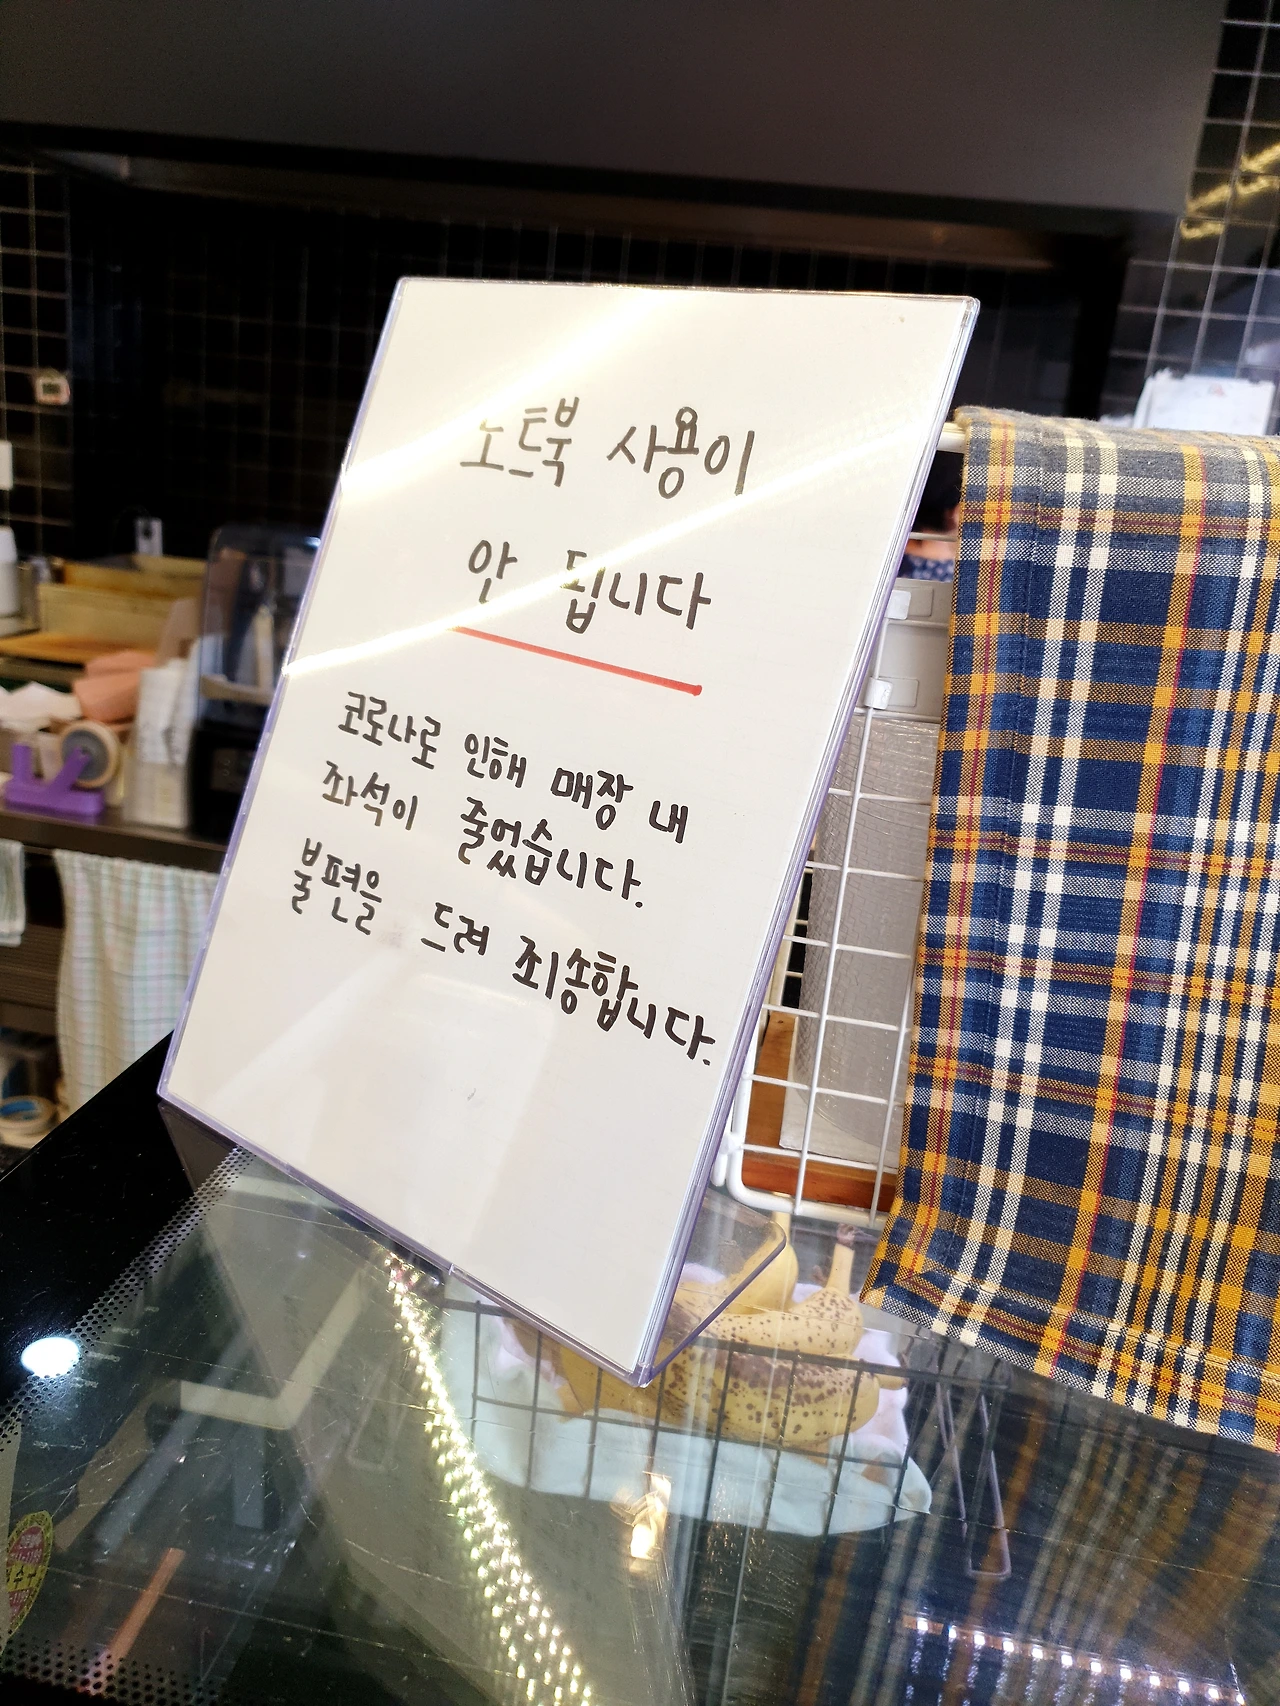 노트북 사용이
안 됩니다
코로나로 인해 매장 내
좌석이 줄었습니다.
불편을 드려 죄송합니다.